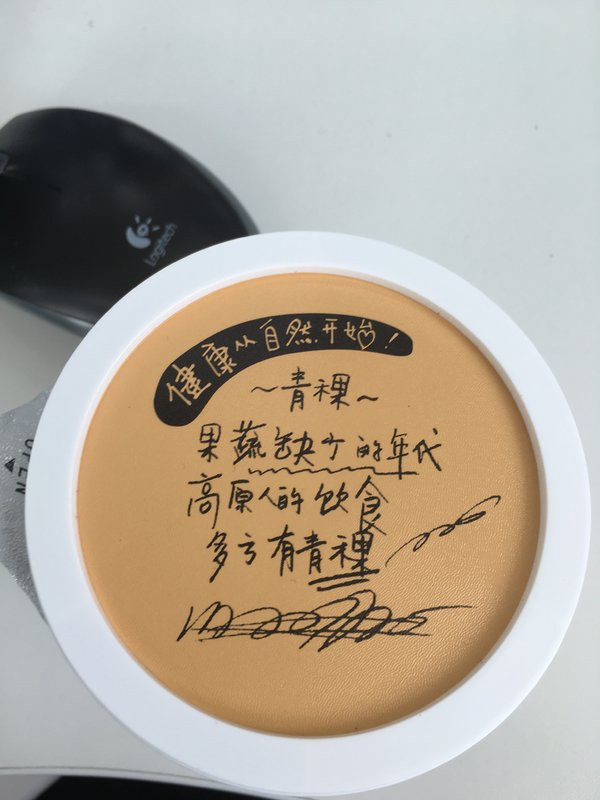 Logitech
健康从自然开始!
~青稞~
果蔬缺少的年代
高原人的饮食
多亏有青稞
OPEN